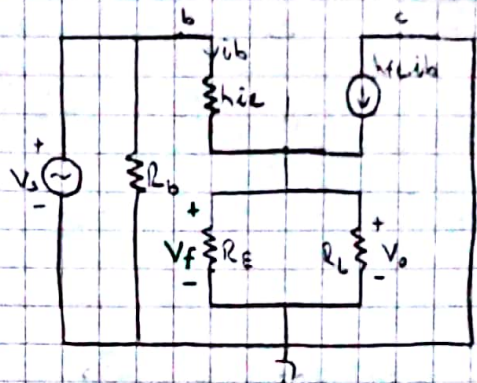 b c
ib
hie
hfe ib
+
Vs
-
Rb
+
Vf
-
RE
RL
+
Vo
-